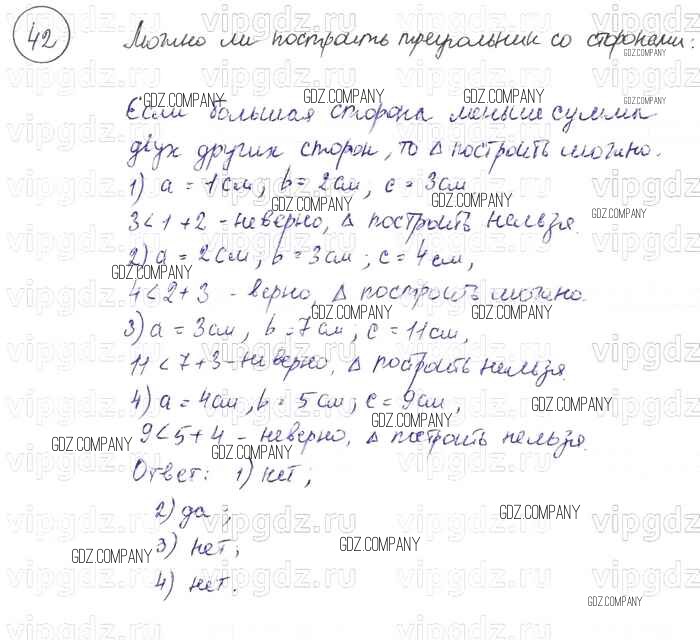 42 Можно ли построить треугольник со сторонами:
Если большая сторона меньше суммы
двух других сторон, то Δ построить можно.
1) a = 1см, b = 2см, c = 3см
3 < 1 + 2 - неверно, Δ построить нельзя.
2) a = 2см, b = 3см, c = 4см,
4 < 2 + 3 - верно, Δ построить можно.
3) a = 3см, b = 7см, c = 11см,
11 < 7 + 3 - неверно, Δ построить нельзя.
4) a = 4см, b = 5см, c = 9см,
9 < 5 + 4 - неверно, Δ построить нельзя.
Ответ: 1) нет;
2) да;
3) нет;
4) нет.